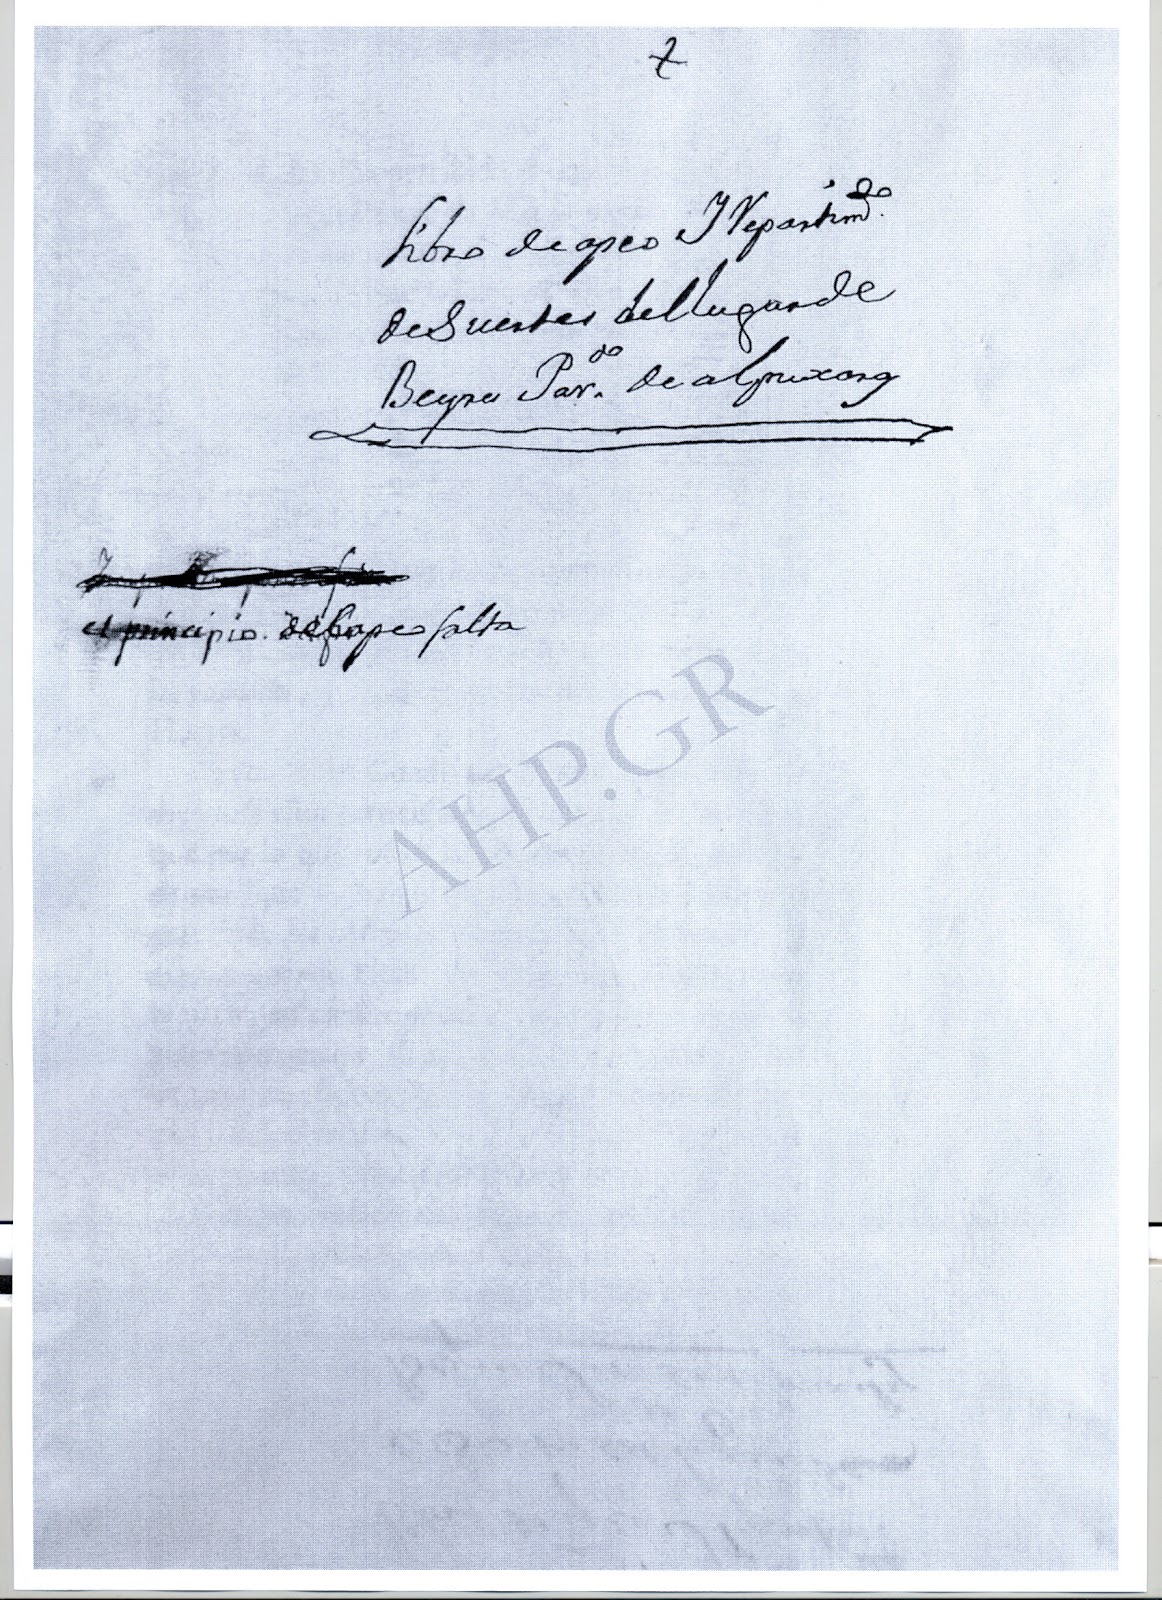 Libro de apeo Y Repartimdo.
de Suertes del lugar de
Beyre Pardo. de alpuxarra
el principio del apeo falta
AHP.GR